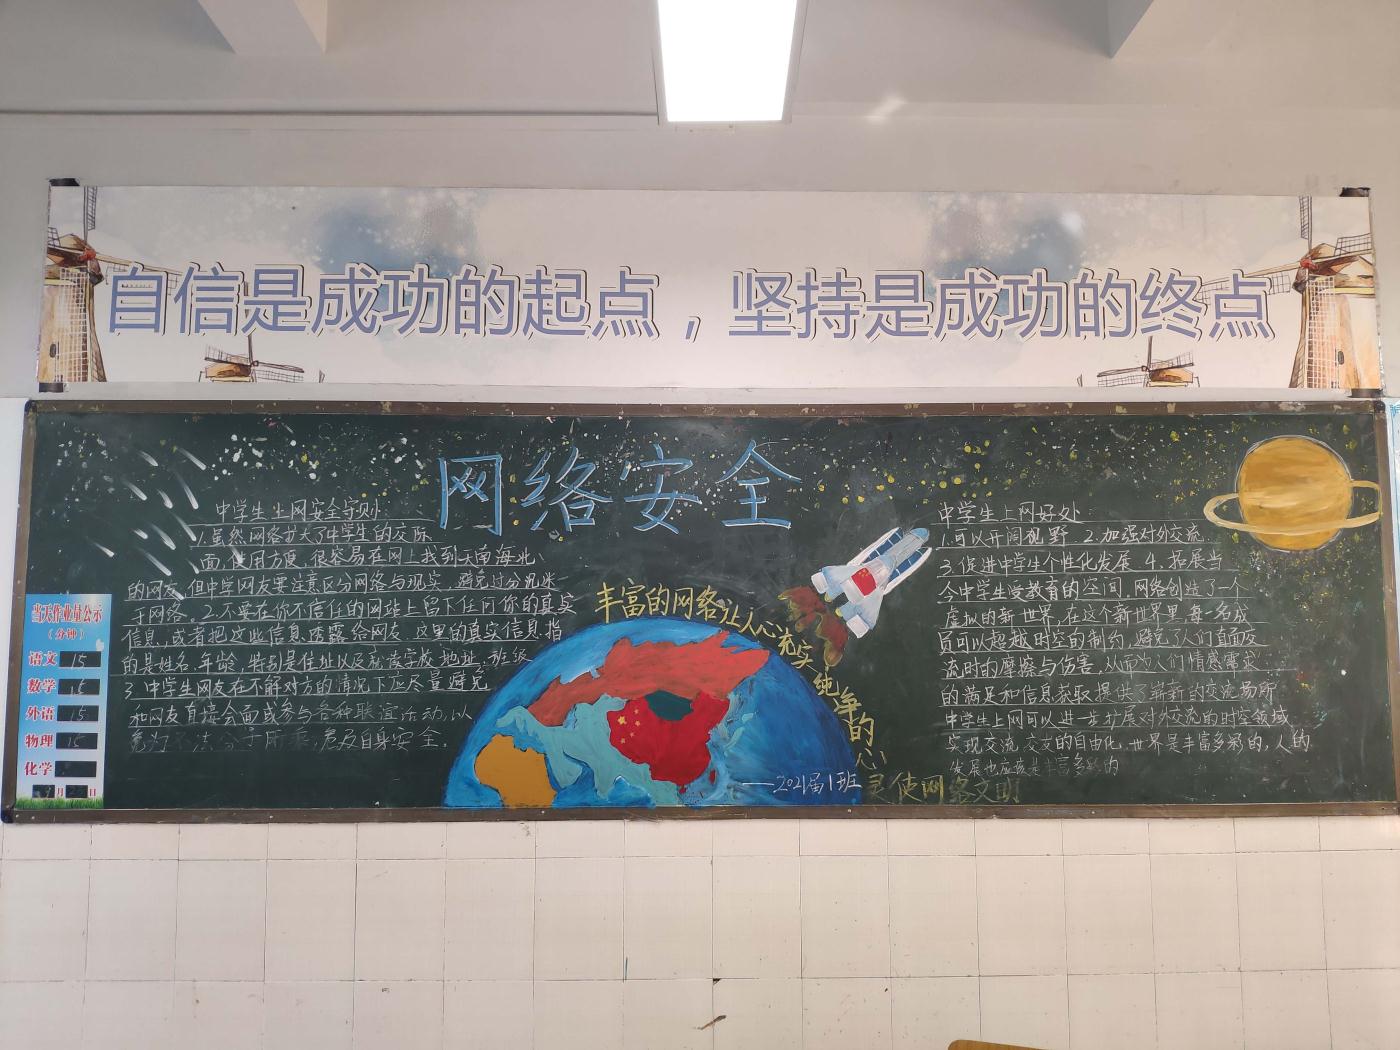 自信是成功的起点，坚持是成功的终点
网络安全
中学生上网安全守则
1.虽然网络扩大了中学生的交际
面,使用方便,很容易在网上找到天南海北
的网友,但中学网友要注意区分网络与现实,避免过分沉迷
于网络。2.不要在你不信任的网站上留下任何你的真实
信息,或者把这些信息透露给网友,这里的真实信息,指
的是姓名,年龄,特别是住址以及就读学校地址,班级
3.中学生网友在不解对方的情况下应尽量避免
和网友直接会面或参与各种联谊活动,以
免为不法分子所乘,危及自身安全.
丰富的网络让人心充实 纯净的心灵使网络文明
——2021届1班
中学生上网好处
1.可以开阔视野 2.加强对外交流
3.促进中学生个性化发展 4.拓展当
今中学生受教育的空间,网络创造了一个
虚拟的新世界,在这个新世界里,每一名成
员可以超越时空的制约,避免了人们直面交
流时的摩擦与伤害,从而为人们情感需求
的满足和信息获取提供了崭新的交流场所
中学生上网可以进一步扩展对外交流的时空领域
实现交流,交友的自由化,世界是丰富多彩的,人的
发展也应该是丰富多彩的
当天作业量公示
（分钟）
语文 15
数学 15
外语 15
物理 15
化学
月 日